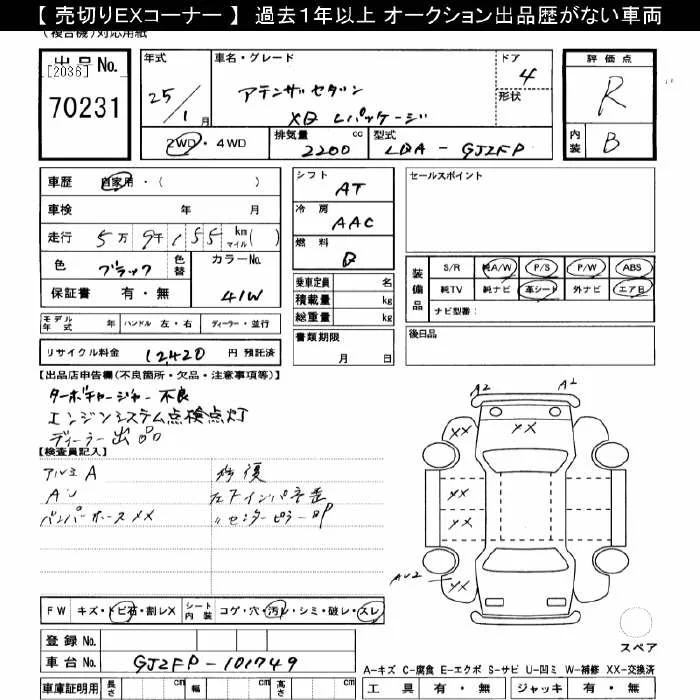 【 売切りEXコーナー 】 過去1年以上 オークション出品歴がない車両
(複合機)対応用紙
出品 No.
[2036]
70231
年式
25/1月
車名・グレード
アテンザセダン
XD Lパッケージ
ドア
4
形状
評価点
R
内装
B
2WD・4WD
排気量
2200 cc
型式
LDA-GJ2FP
車歴 自家用・( )
車検 年 月
走行 5万9千155 km マイル( )
色 ブラック 色替
カラーNo.
41W
保証書 有・無
シフト
AT
冷房
AAC
燃料
乗車定員 名
積載量 kg
総重量 kg
書類期限
月 日
セールスポイント
装備品
S/R 純A/W P/S P/W ABS
純TV 純ナビ 革シート 外ナビ エアB
ナビ型番:
後日品
モデル年式 年 ハンドル 左・右 ディーラー・並行
リサイクル料金 12,420 円 預託済
【出品店申告欄(不良箇所・欠品・注意事項等)】
ターボチャージャー不良
エンジンシステム点検点灯
ディーラー出品
【検査員記入】
アルミA
修復
バンパーホースXX
左下インパネ歪
〃センターピラー凹
FW キズ・トビ石・割レX シート内装 コゲ・穴・汚レ・シミ・破レ・スレ
登録No.
車台No. GJ2FP-101749
車庫証明用 長さ cm 幅 cm 高さ cm
A2
A2
XX
XX
XX
XX
XX
AU2
スペア
A-キズ C-腐食 E-エクボ S-サビ U-凹ミ W-補修 XX-交換済
工具 有・無 ジャッキ 有・無